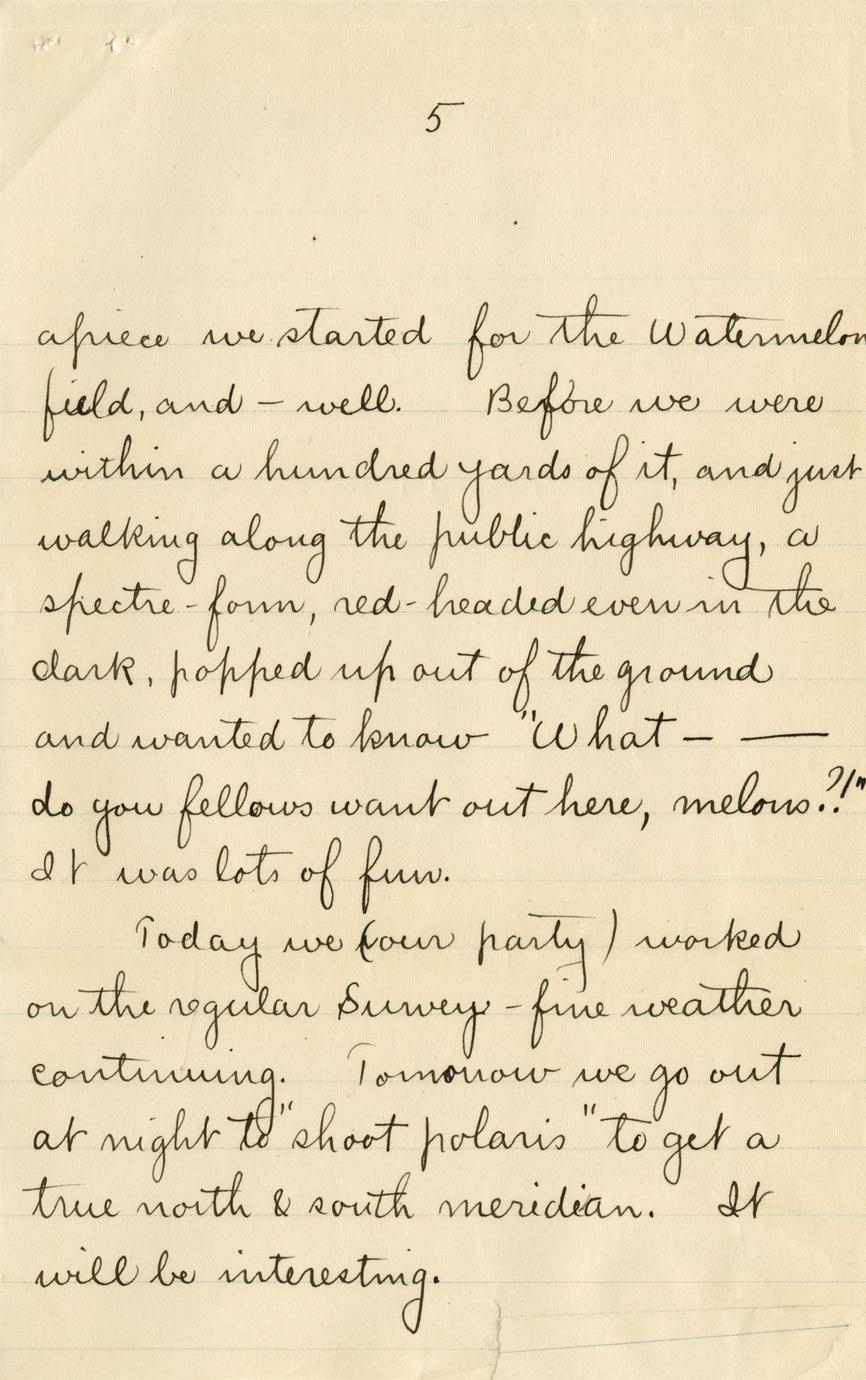 5
apiece we started for the Watermelon
field, and – well. Before we were
within a hundred yards of it, and just
walking along the public highway, a
spectre-form, red-headed even in the
dark, popped up out of the ground
and wanted to know "What – —
do you fellows want out here, melons?!"
It was lots of fun.
Today we (our party) worked
on the regular Survey – fine weather
continuing. Tomorrow we go out
at night to "shoot polaris" to get a
true north & south meridian. It
will be interesting.